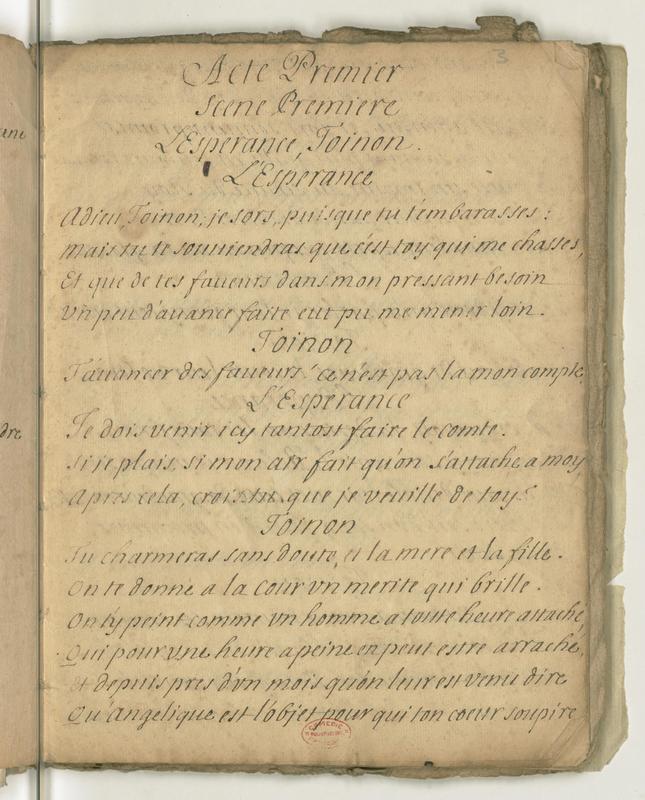 3
Acte Premier
Scene Premiere
L'Esperance, Toinon.
L'Esperance
Adieu, Toinon, je sors, puisque tu t'embarasses;
Mais tu te souviendras que c'est toy qui me chasses,
Et que de tes faveurs dans mon pressant besoin
Vn peu d'avance faite eut pu me mener loin.
Toinon
T'avancer des faveurs! ce n'est pas la mon compte.
L'Esperance
Je dois venir icy tantost faire le comte.
Si je plais, si mon air fait qu'on s'attache a moy,
Apres cela, crois tu que je veuille de toy?
Toinon
Tu charmeras sans doute, et la mere et la fille.
On te donne a la Cour vn merite qui brille.
On t'y peint comme vn homme a toute heure attaché,
Qui pour vne heure a peine en peut estre arraché,
Et depuis pres d'vn mois qu'on leur est venu dire
Qu'Angelique est l'objet pour qui ton coeur soupire,
COMEDIE
ane
dre